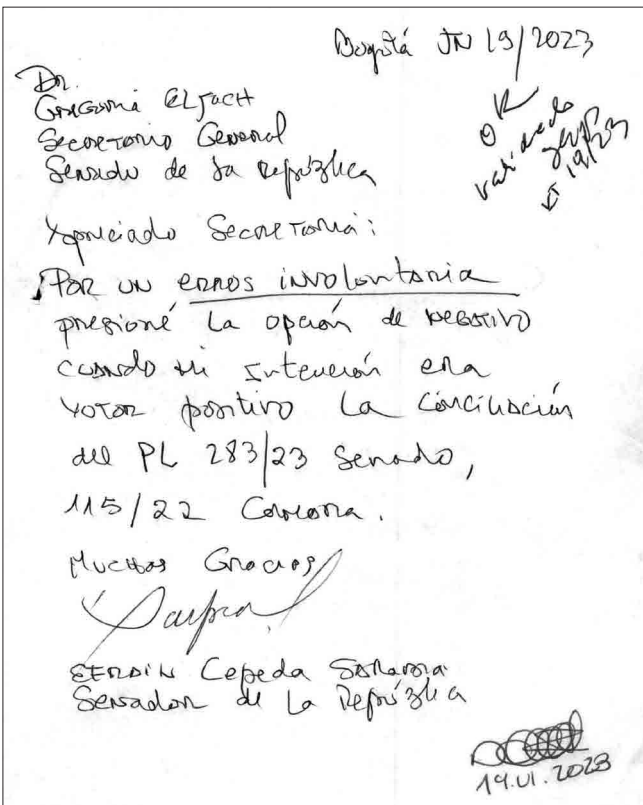 Bogotá JN 19/2023
Dr.
Gregorio Eljach
Secretario General
Senado de La República
OK
validado
VI 19/23
Apreciado Secretario:
Por un error involuntario
presioné la opción de negativo
cuando mi intención era
votar positivo la conciliación
del PL 283/23 Senado,
115/22 Cámara.
Muchas Gracias
Efraín Cepeda Sarabia
Senador de La República
19.VI.2023